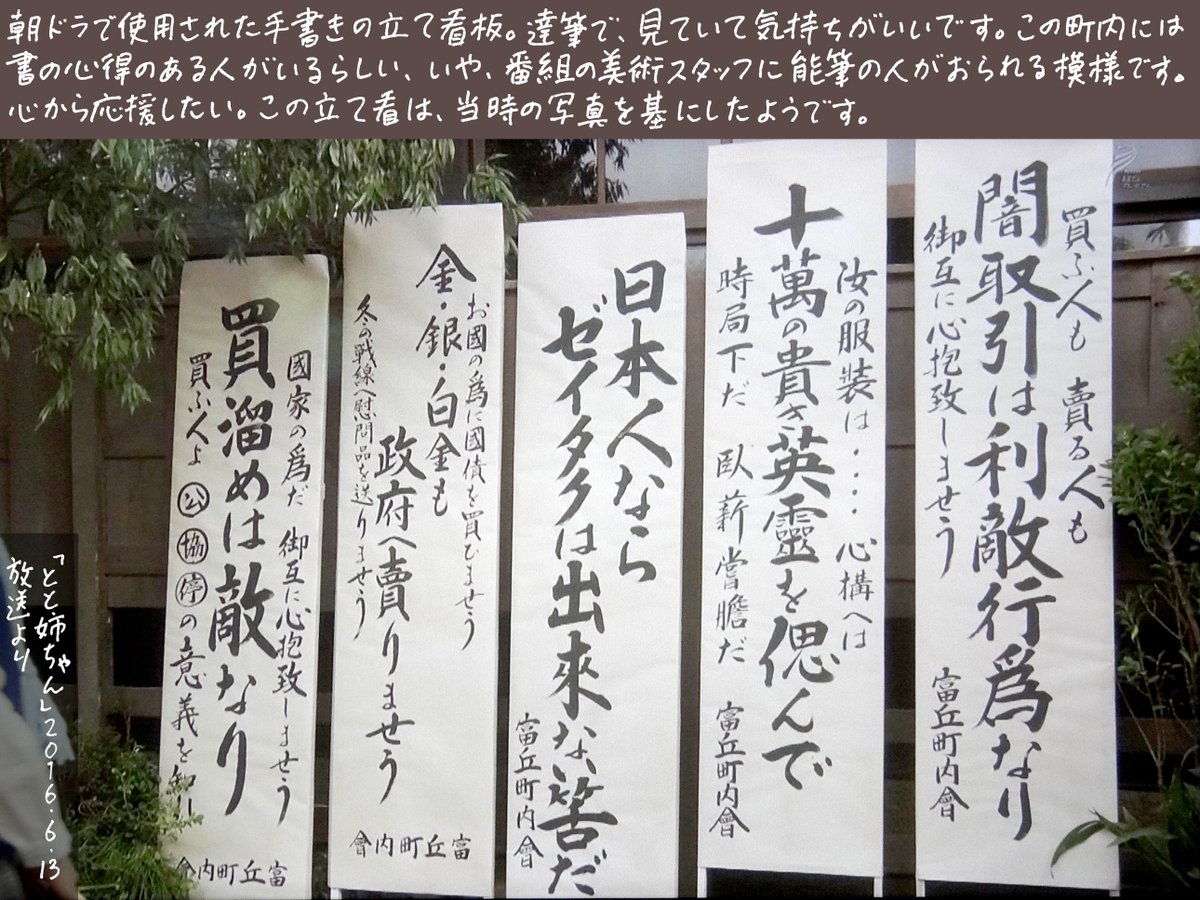 朝ドラで使用された手書きの立て看板。達筆で、見ていて気持ちがいいです。この町内には
書の心得のある人がいるらしい、いや、番組の美術スタッフに能筆の人がおられる模様です。
心から応援したい。この立て看は、当時の写真を基にしたようです。
買ふ人も 賣る人も
闇取引は利敵行爲なり
御互に心抱致しませう
富丘町内會
汝の服装は・・・・心構へは
十萬の貴き英靈を偲んで
時局下だ 臥薪嘗膽だ
富丘町内會
日本人なら
ゼイタクは出來ない筈だ
富丘町内會
お國の爲に國債を買ひませう
金・銀・白金も
政府へ賣りませう
冬の戦線へ慰問品を送りませう
會内町丘富
國家の爲だ 御互に心抱致しませう
買溜めは敵なり
買ふ人よ 公 協 停の意義を知れ
會内町丘富
「とと姉ちゃん」2016.6.13
放送より